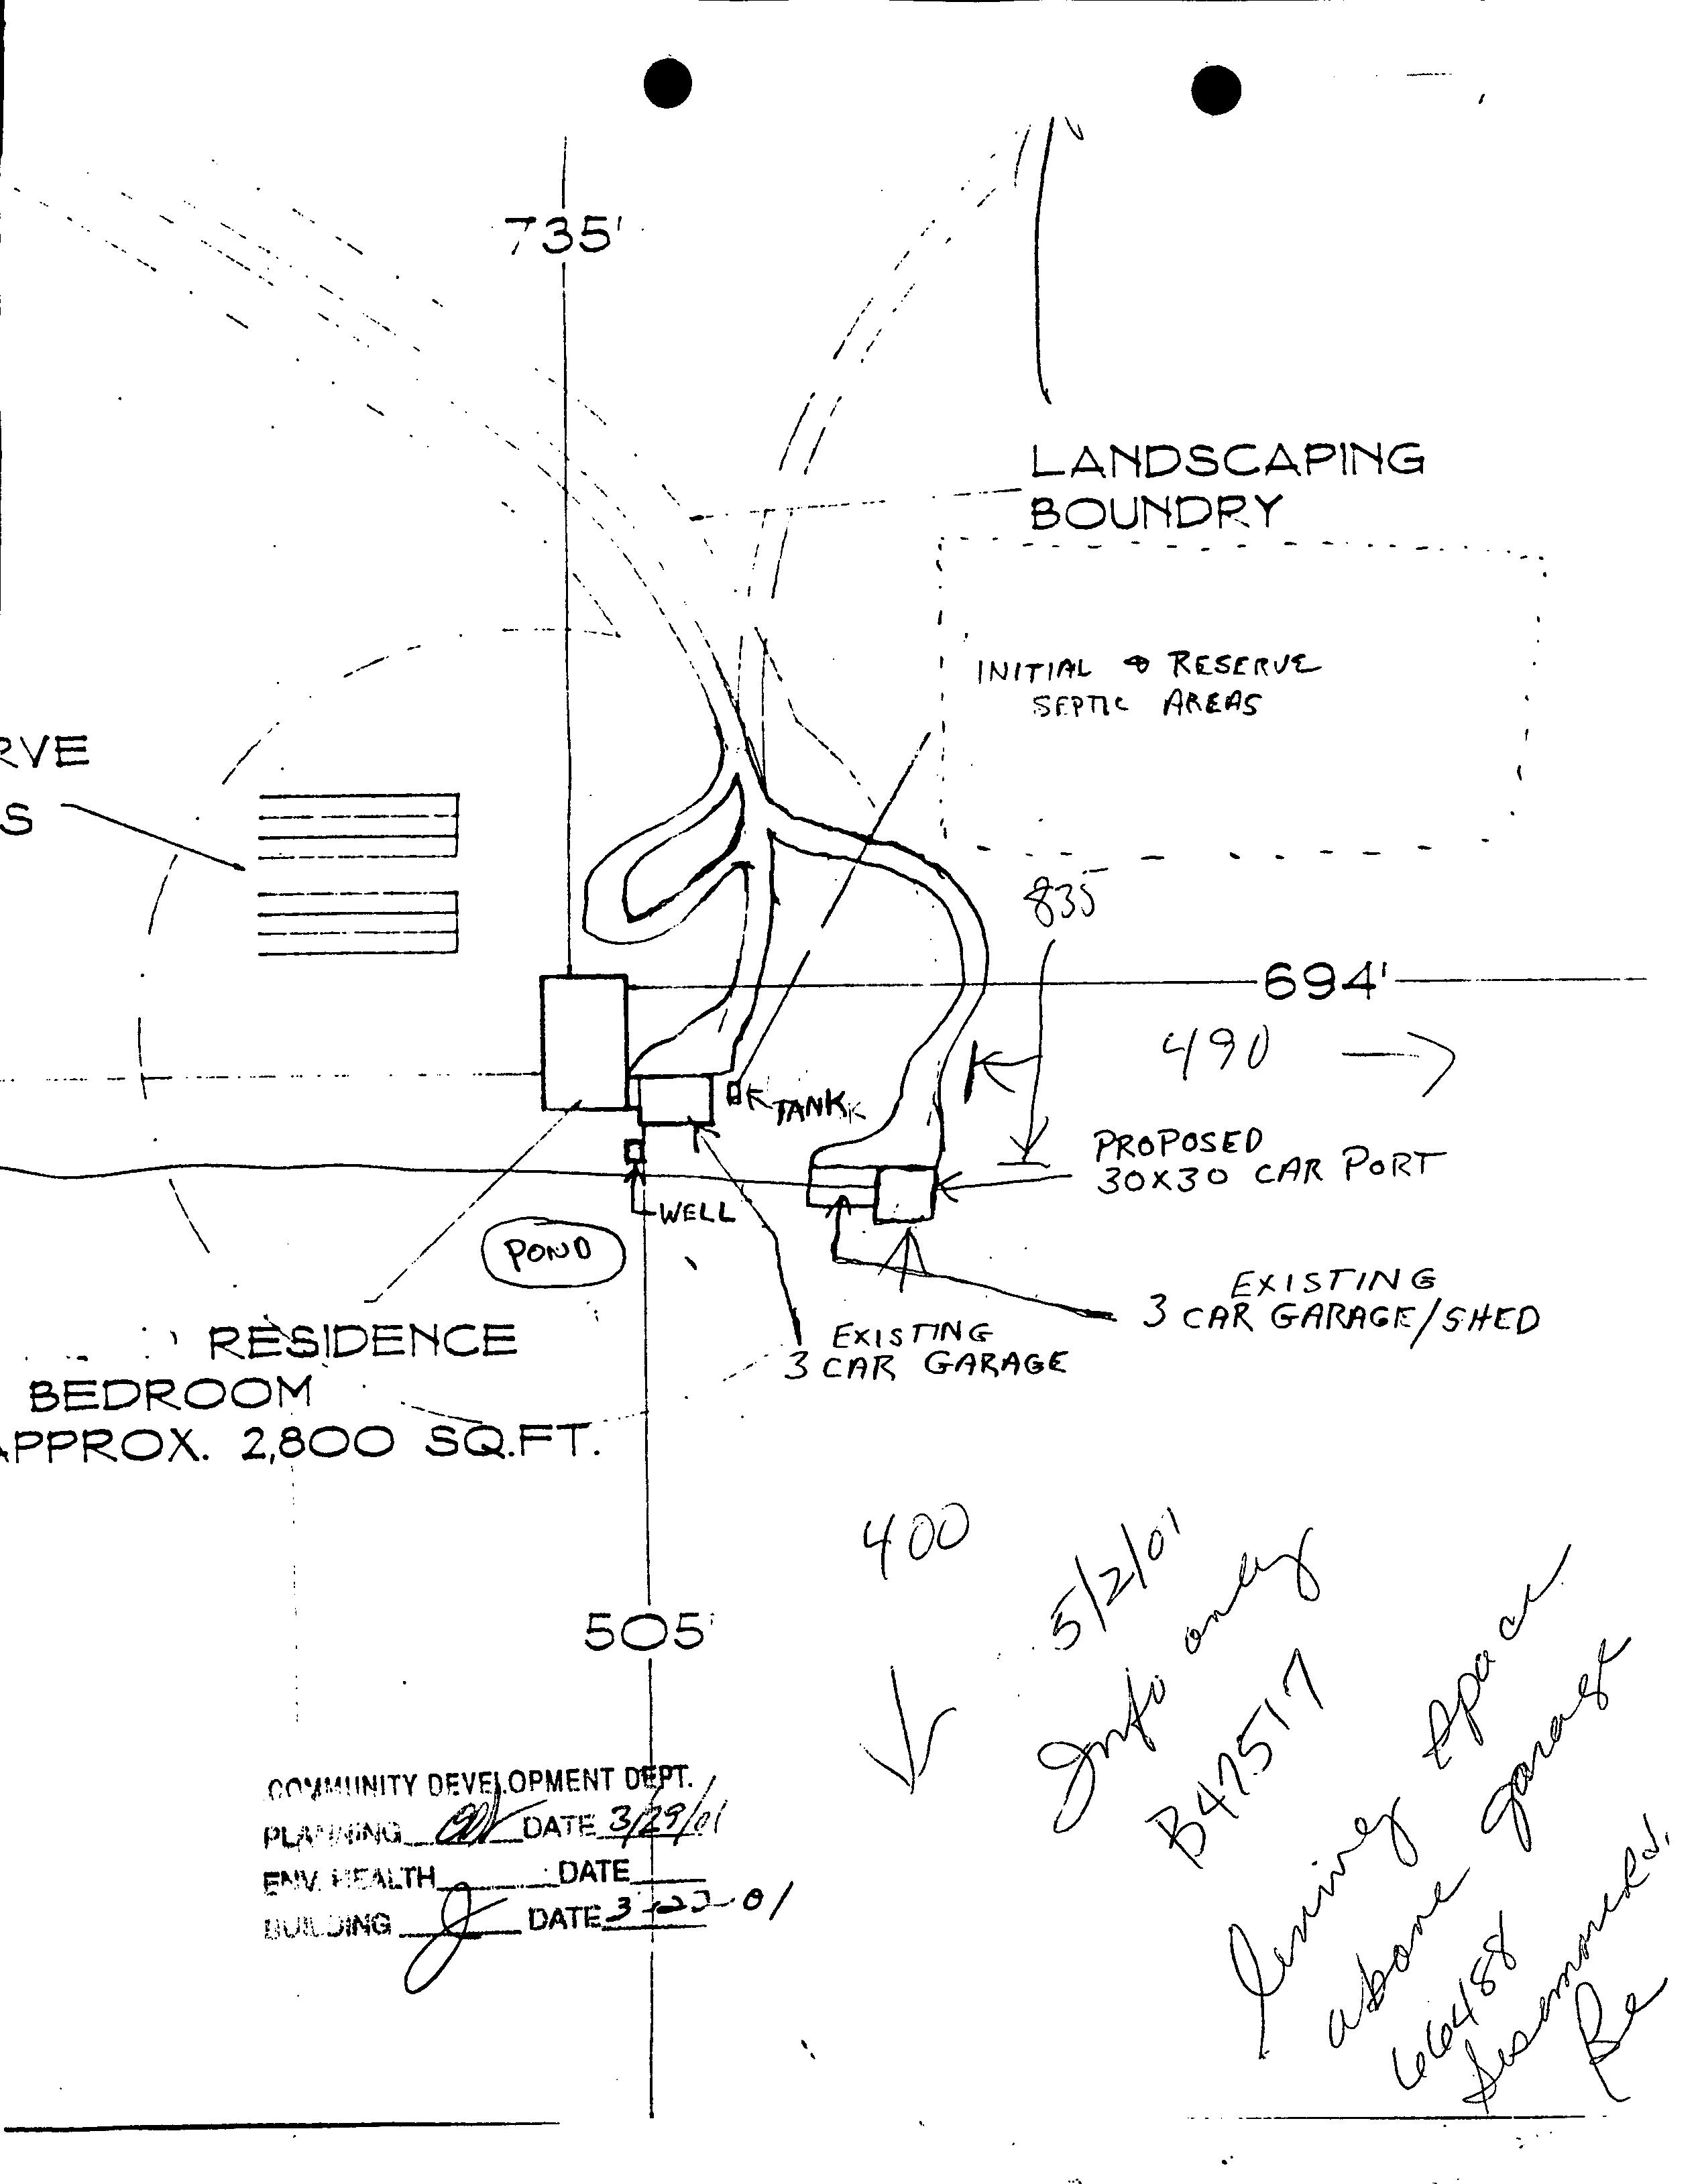 735'
LANDSCAPING
BOUNDRY
INITIAL & RESERVE
SEPTIC AREAS
RVE
S
835
694'
490
TANK
PROPOSED
30X30 CAR PORT
WELL
POND
EXISTING
3 CAR GARAGE/SHED
EXISTING
3 CAR GARAGE
RESIDENCE
BEDROOM
APPROX. 2,800 SQ.FT.
400
505'
5/2/01
Info only
B47517
living space
above garage
66488
COMMUNITY DEVELOPMENT DEPT.
PLANNING DATE 3/29/01
ENV. HEALTH DATE
BUILDING DATE 3-27-01